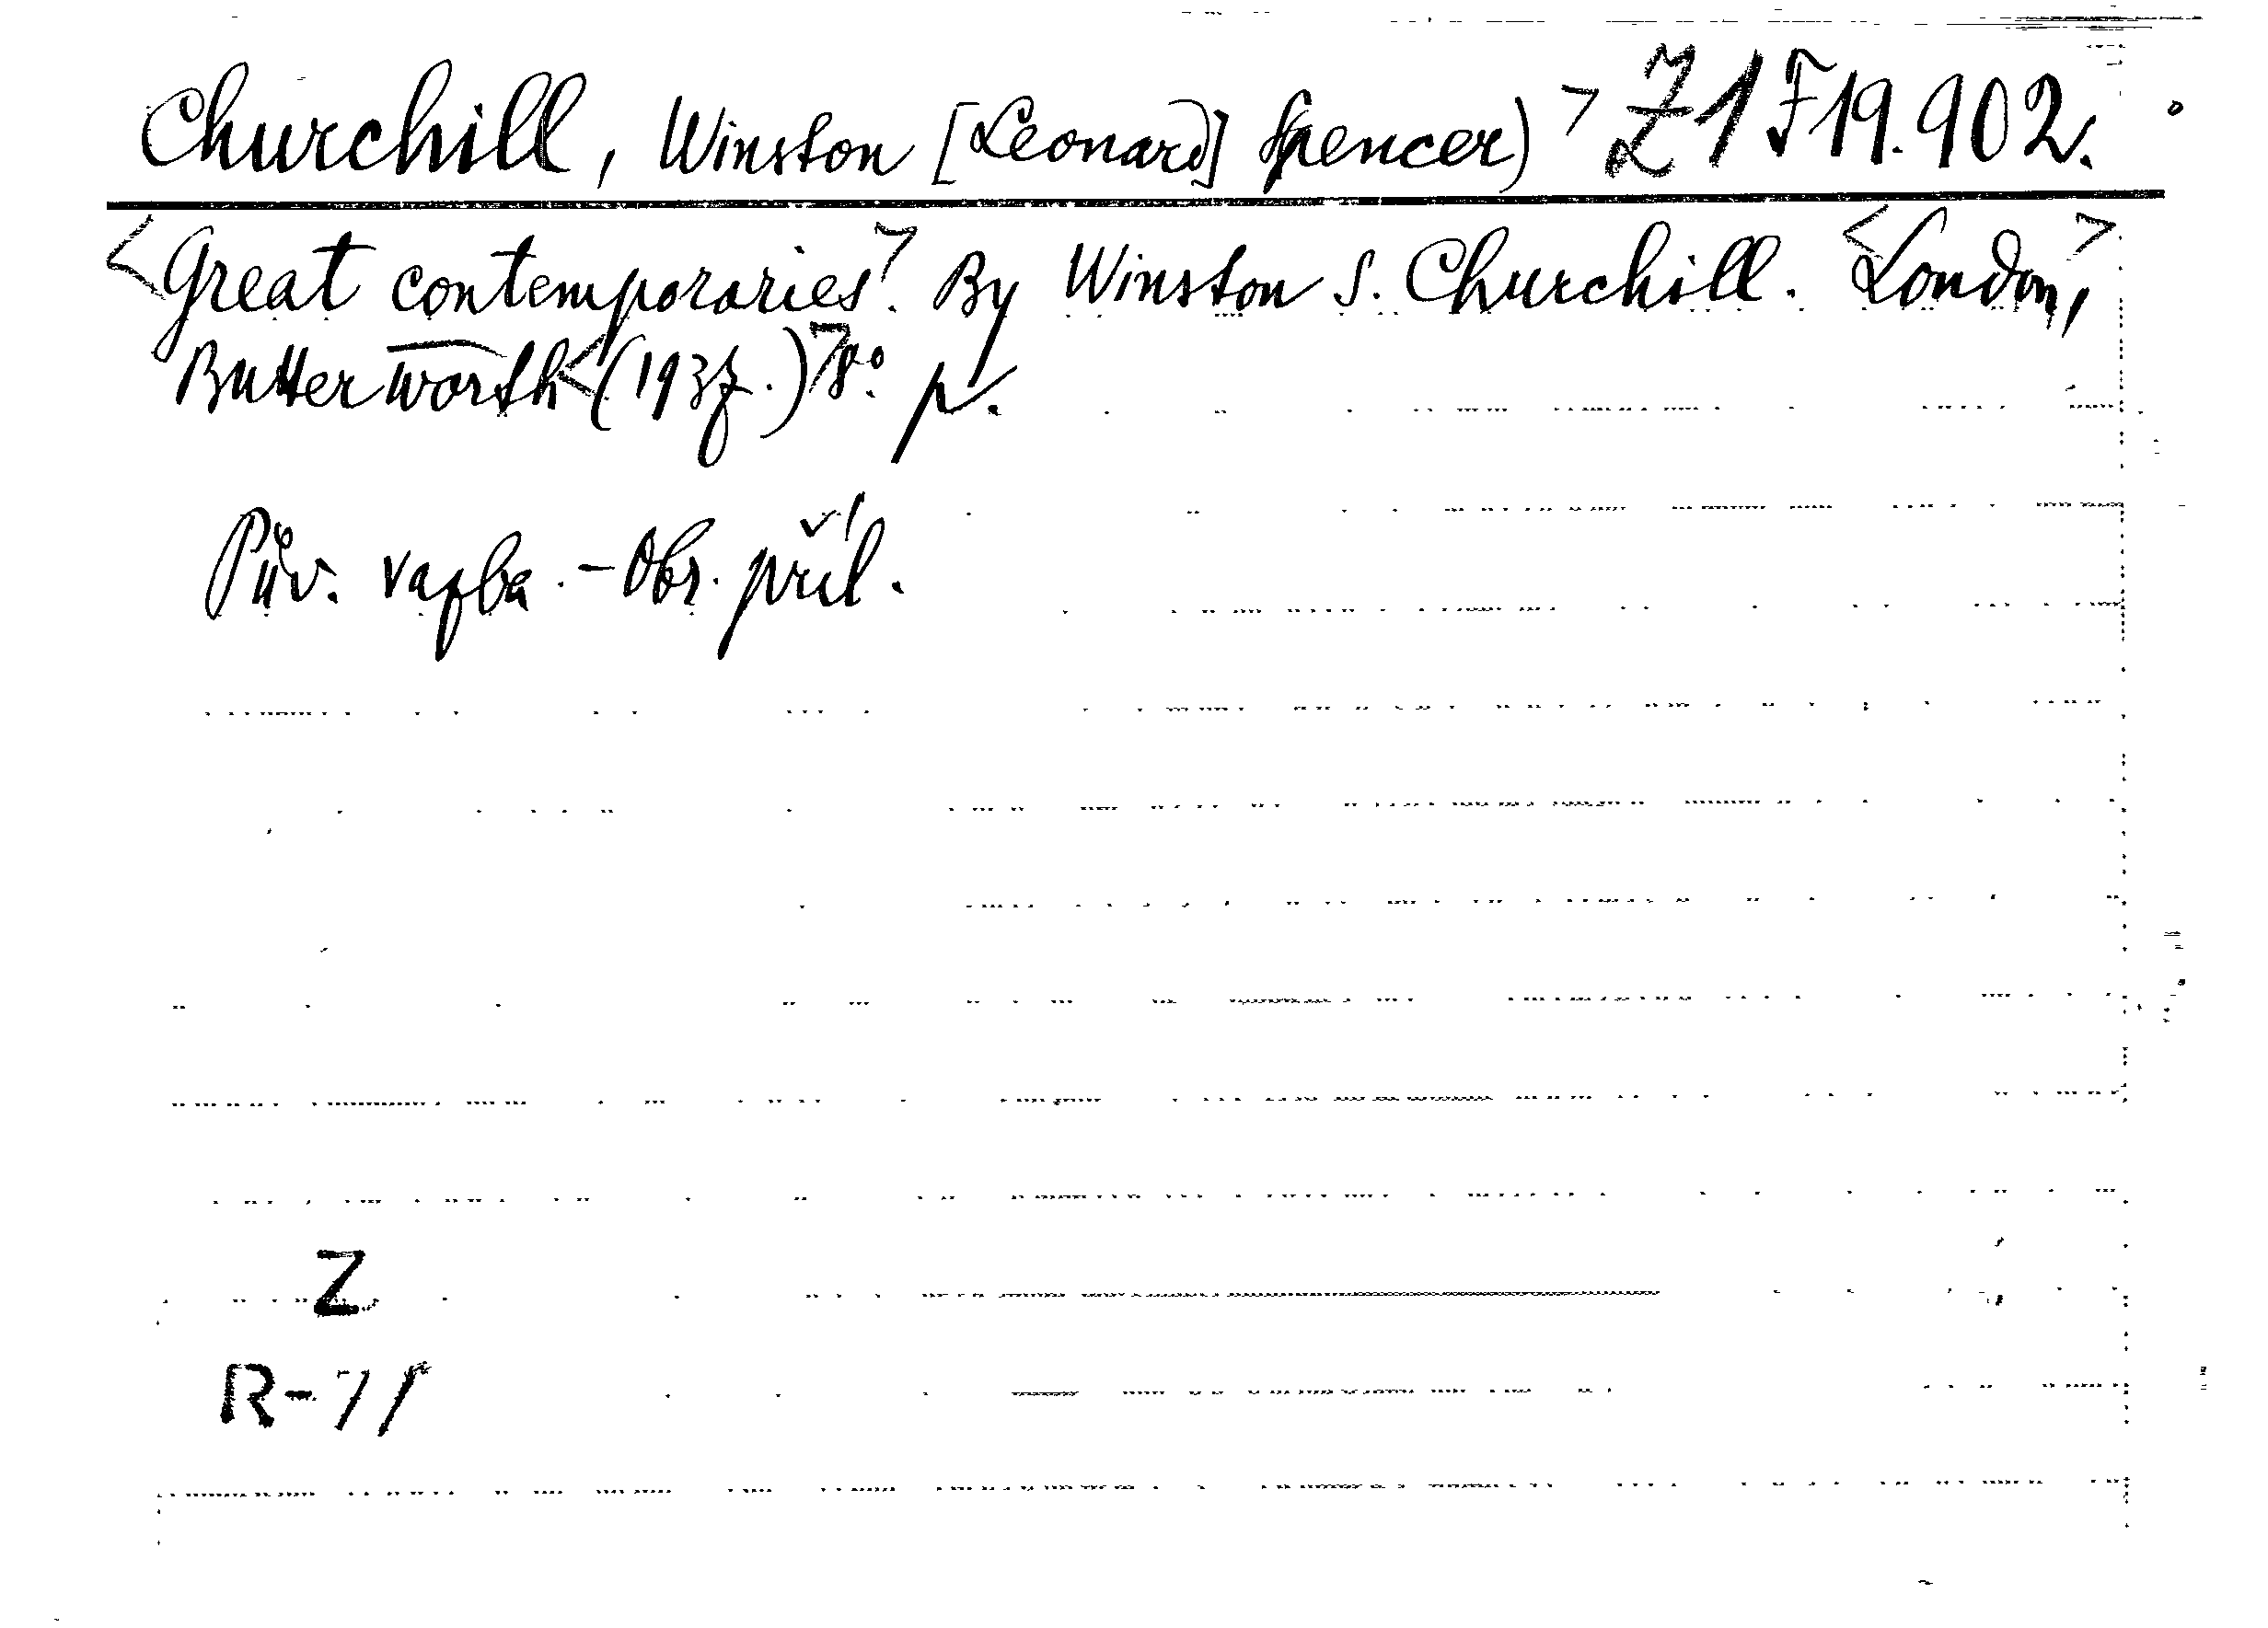 Churchill, Winston [Leonard] Spencer) > Z1 F19.902.
<Great contemporaries>. By Winston S. Churchill. <London,>
Butterworth <(1937.)> 8° p.
Pův. vazba. - Obr. příl.
Z
R-71